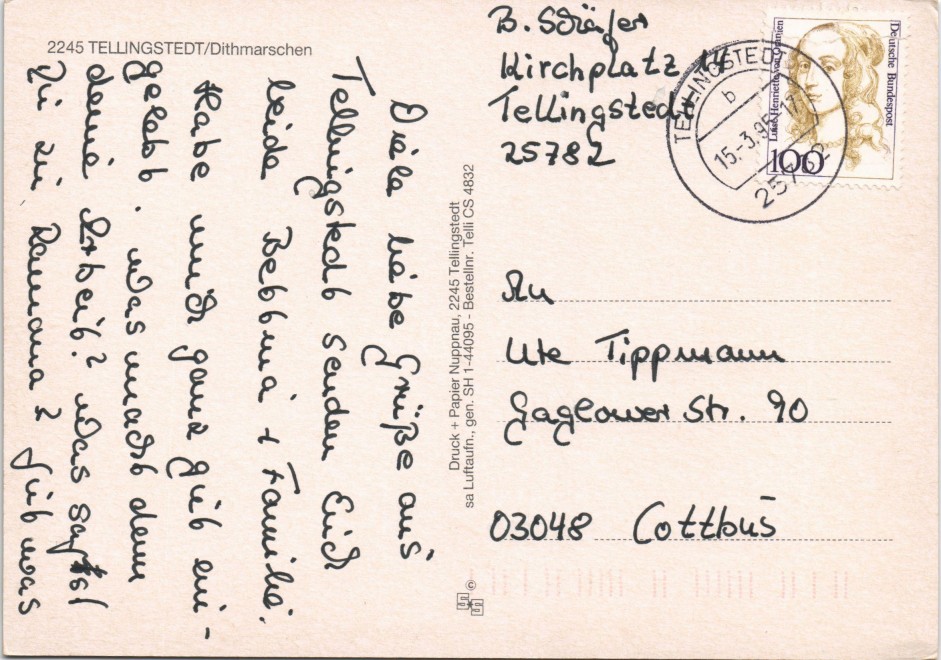 2245 TELLINGSTEDT/Dithmarschen
Viele liebe Grüße aus
Tellingstedt senden Euch
beide Bettina + Familie.
Habe mich ganz gut ein-
gelebt. Was macht denn
deine Arbeit? Was
Du zu Ramona? Gibt was
Druck + Papier Nuppnau, 2245 Tellingstedt
sa Luftaufn., gen. SH 1-44095 - Bestellnr. Telli CS 4832
B. Schäfer
Kirchplatz 14
Tellingstedt
25782
TELLINGSTEDT
b
15.-3.95-17
25782
Deutsche Bundespost
Luise Henriette von Oranien
100
An
Ute Tippmann
Gaglower Str. 90
03048 Cottbus
©